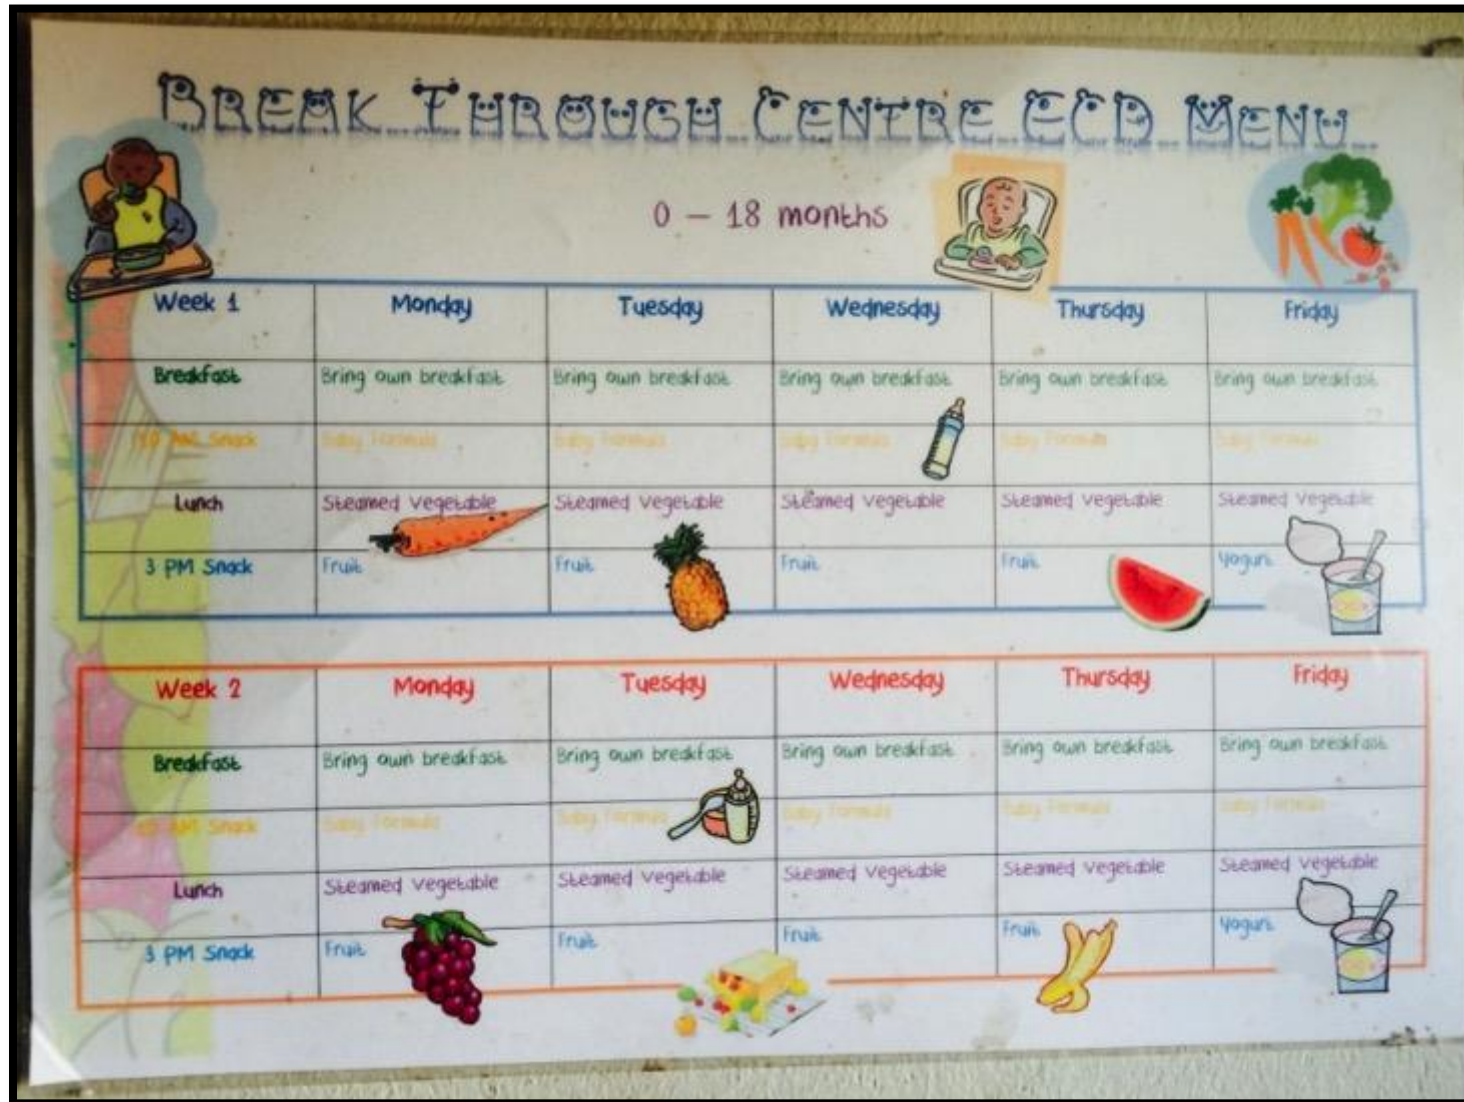 BREAK THROUGH CENTRE ECD MENU
0 – 18 months
Week 1 Monday Tuesday Wednesday Thursday Friday
Breakfast Bring own breakfast Bring own breakfast Bring own breakfast Bring own breakfast Bring own breakfast
10 AM Snack Baby Formula Baby Formula Baby Formula Baby Formula Baby Formula
Lunch Steamed Vegetable Steamed Vegetable Steamed Vegetable Steamed Vegetable Steamed Vegetable
3 PM Snack Fruit Fruit Fruit Fruit Yogurt
Week 2 Monday Tuesday Wednesday Thursday Friday
Breakfast Bring own breakfast Bring own breakfast Bring own breakfast Bring own breakfast Bring own breakfast
10 AM Snack Baby Formula Baby Formula Baby Formula Baby Formula Baby Formula
Lunch Steamed Vegetable Steamed Vegetable Steamed Vegetable Steamed Vegetable Steamed Vegetable
3 PM Snack Fruit Fruit Fruit Fruit Yogurt